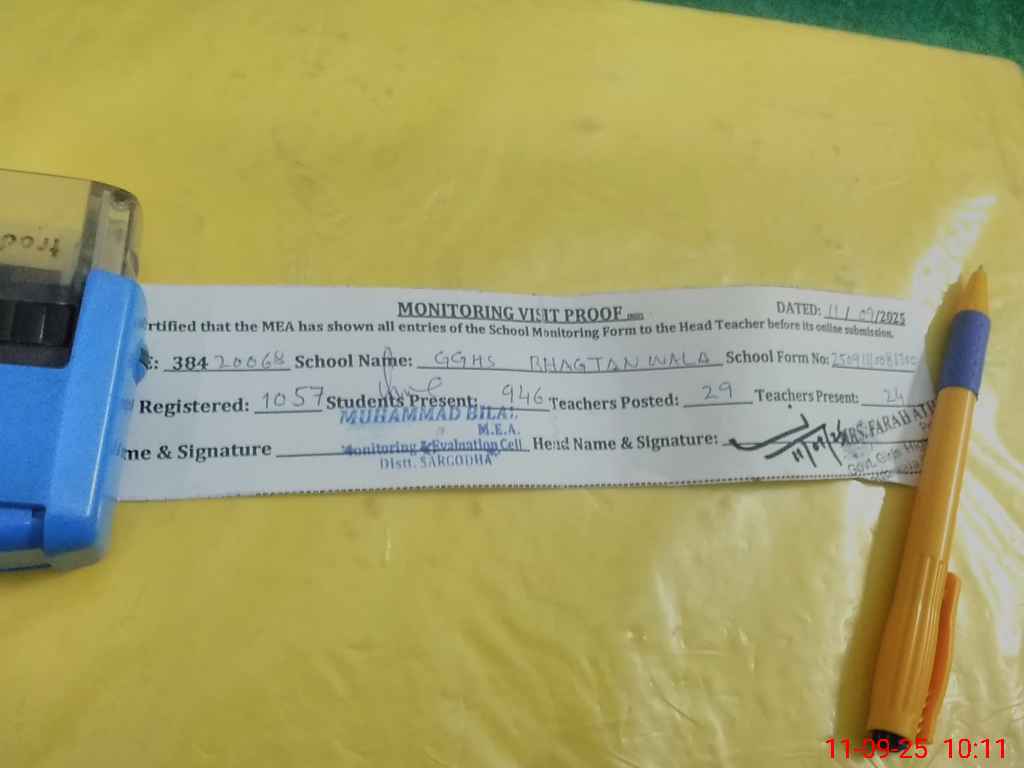 MONITORING VISIT PROOF
DATED: 11/09/2025
rtified that the MEA has shown all entries of the School Monitoring Form to the Head Teacher before its online submission.
: 38420068 School Name: GGHS BHAGTANWALA School Form No:
Registered: 1057 Students Present: 946 Teachers Posted: 29 Teachers Present: 24
MUHAMMAD BILAL
M.E.A.
me & Signature Monitoring & Evaluation Cell Head Name & Signature: MRS. FARAH
Distt. SARGODHA
Govt. Girls
11-09-25 10:11